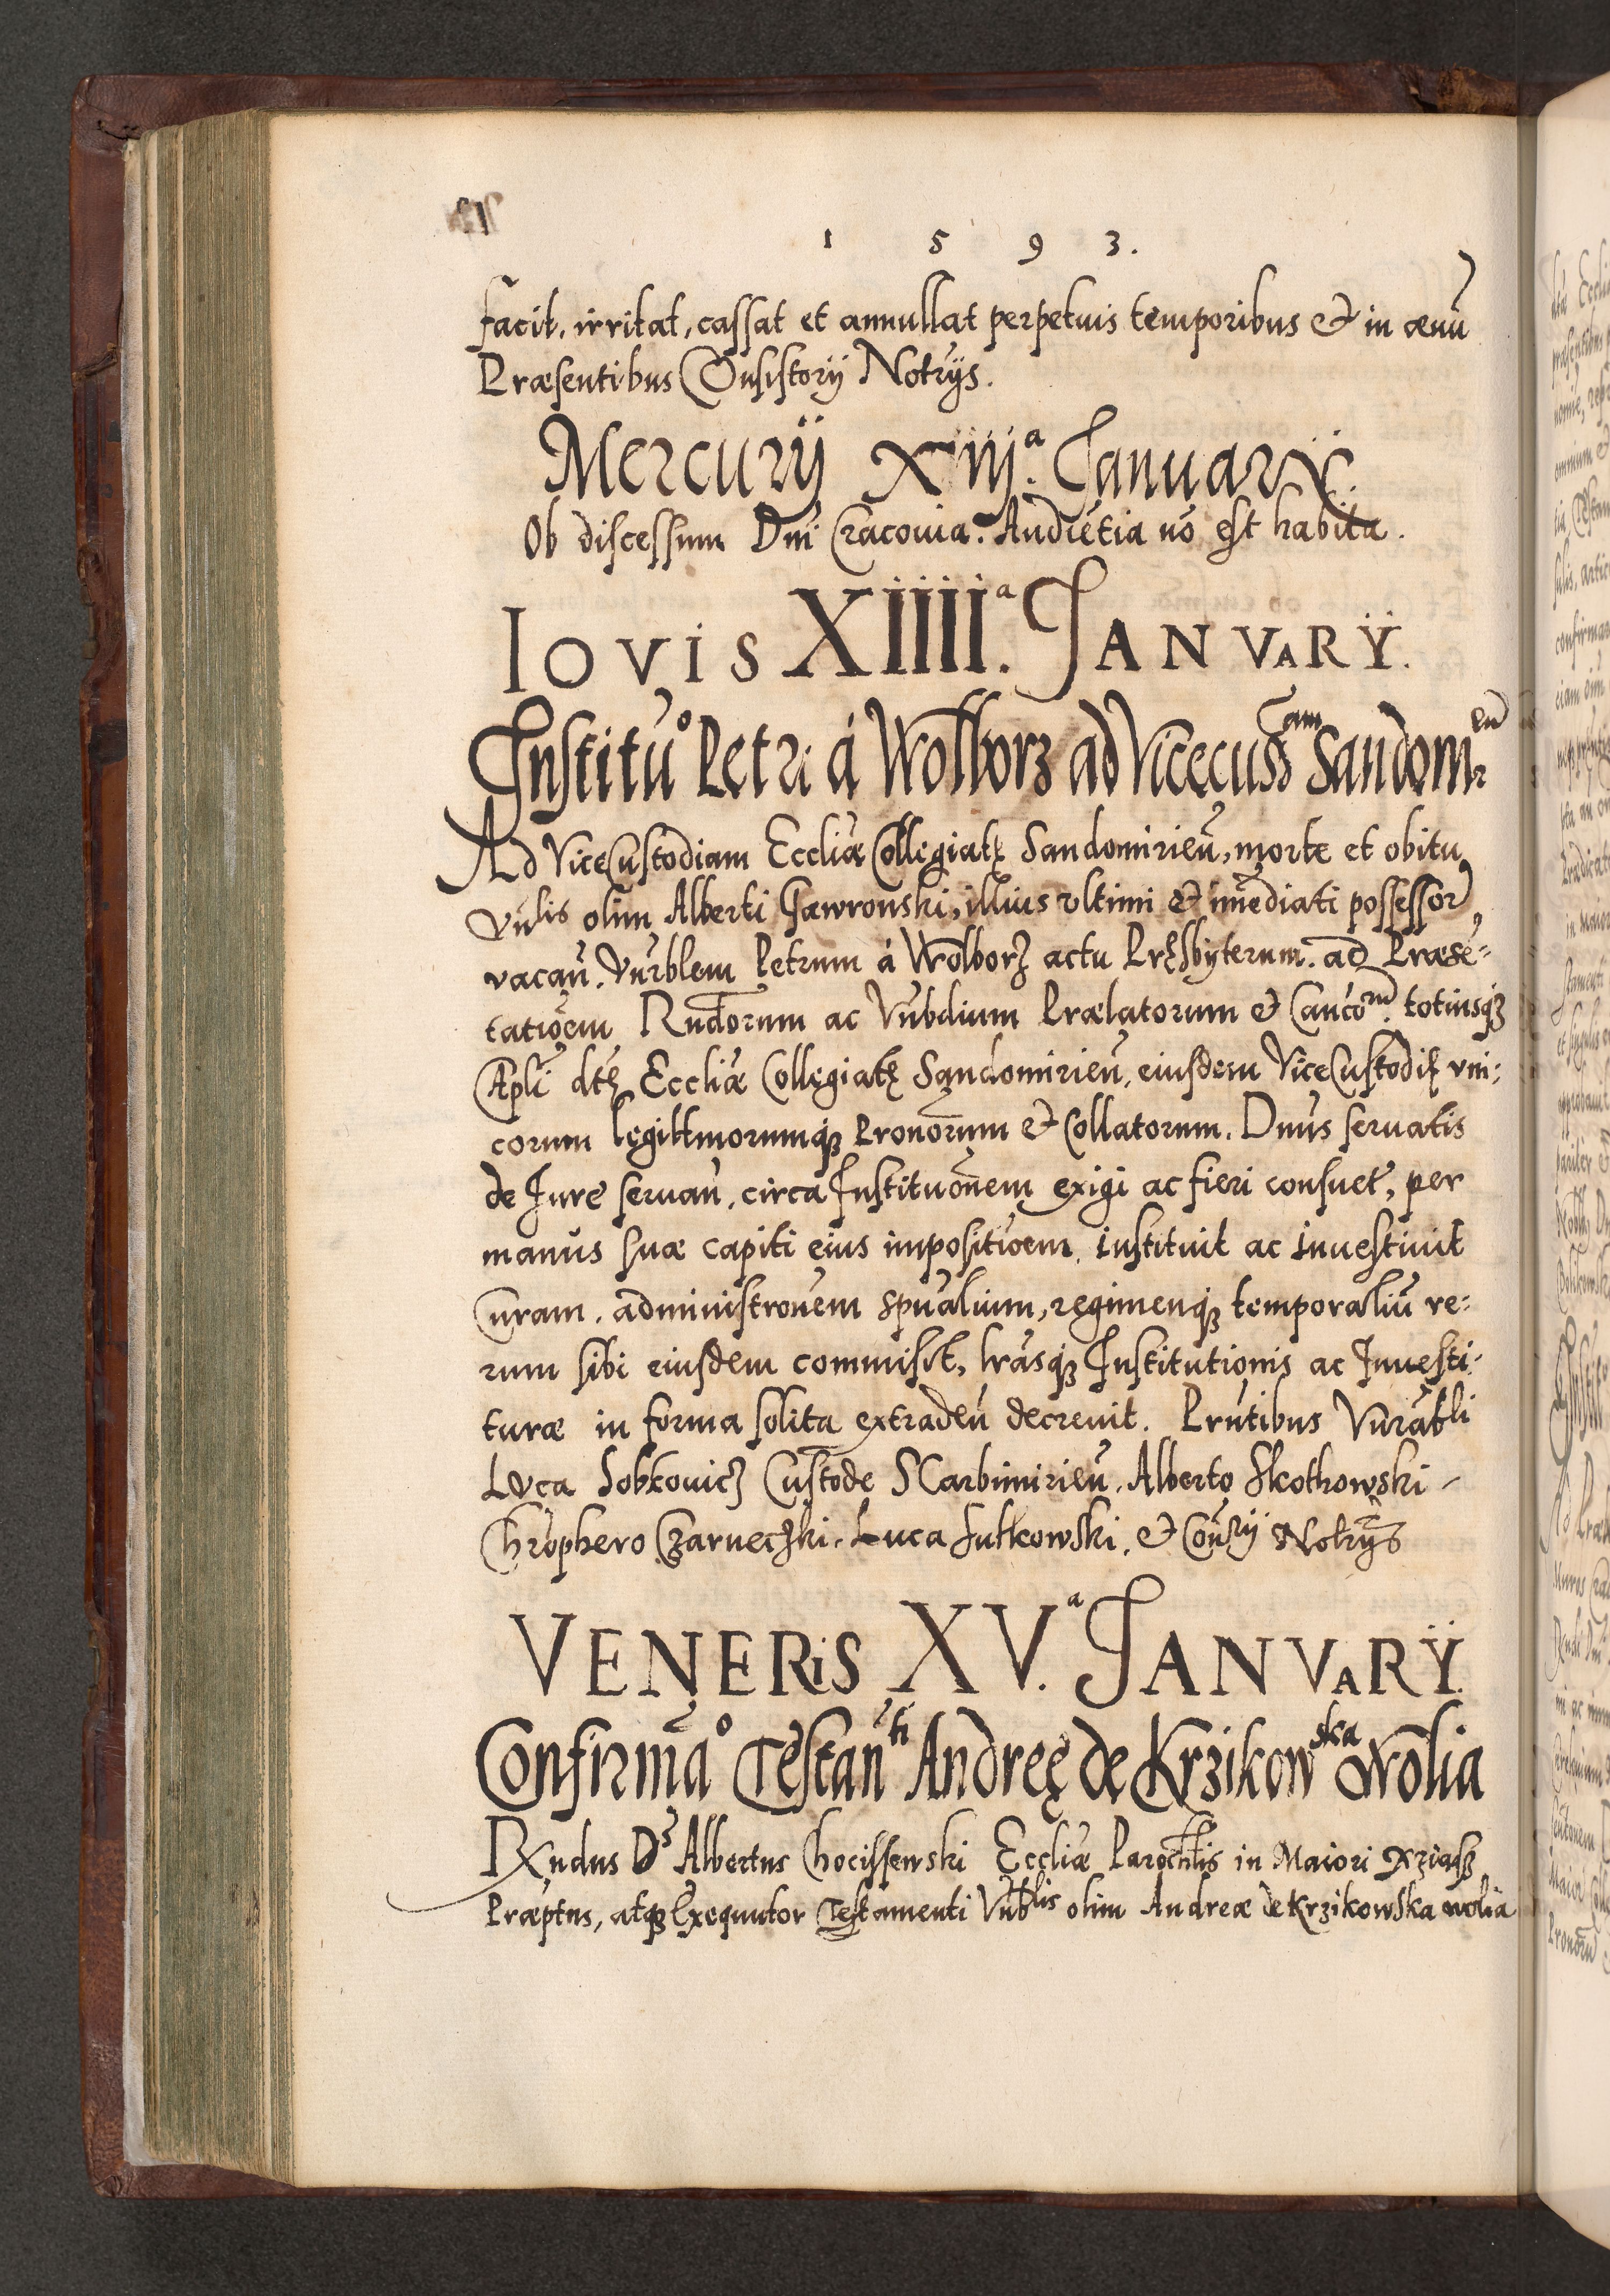 1 5 9 3.
facit, irritat, cassat et annullat perpetuis temporibus et in ævū
Præsentibus Consistorij Notrijs.
Mercurij XIIIa. Januarij.
Ob discessum Dni Cracovia. Audiētia nō est habita.
IOVIS XIIIIa. JANVARŸ.
Institūo Petri á Wolborz ad Vicecussam Sandomren̄
Ad ViceCustodiam Eccliæ Collegiatę Sandomirien̄, morte et obitu
Vn̄lis olim Alberti Gawronski, illius vltimi et im̄ediati possessor,
vacan̄. Vnrblem Petrum á Wolborz actu Pręsbyterum. ad Præsē=
tatiōem Rndorum ac Vnbdium Prælatorum et Cancorum. totiusqꝫ
Capli dtę Eccliæ Collegiatę Sandomirien̄, eiusdem ViceCustodię vni=
corum legittimorumqꝫ Pronorum et Collatorum. Dnus servatis
de Jure servan̄, circa Instituōnem exigi ac fieri consuet, per
manus suæ capiti eius impositioem, instituit ac investivit
Curam, administronem spualium, regimenqꝫ temporaliū re=
rum sibi eiusdem commisit, lrasqꝫ Institutionis ac Investi=
turæ in forma solita extraden̄ decrevit. Prn̄tibus Vnrabli
Luca Sobkovicz Custode SCarbimirien̄, Alberto Skothowski
Chrophero Czarneczki, Luca Jutkowski, et Conrij Notrijs
VENERiS XVa. JANVARŸ.
Confirmāo Testan̄ti Andreę de Krzikowska Wolia
RXndus Ds Albertus Chocissewski Eccliæ Parochlis in Maiori Xziasz
Præptus, atqꝫ Exequutor Testamenti Vnblis olim Andreæ de Krzikowska wolia